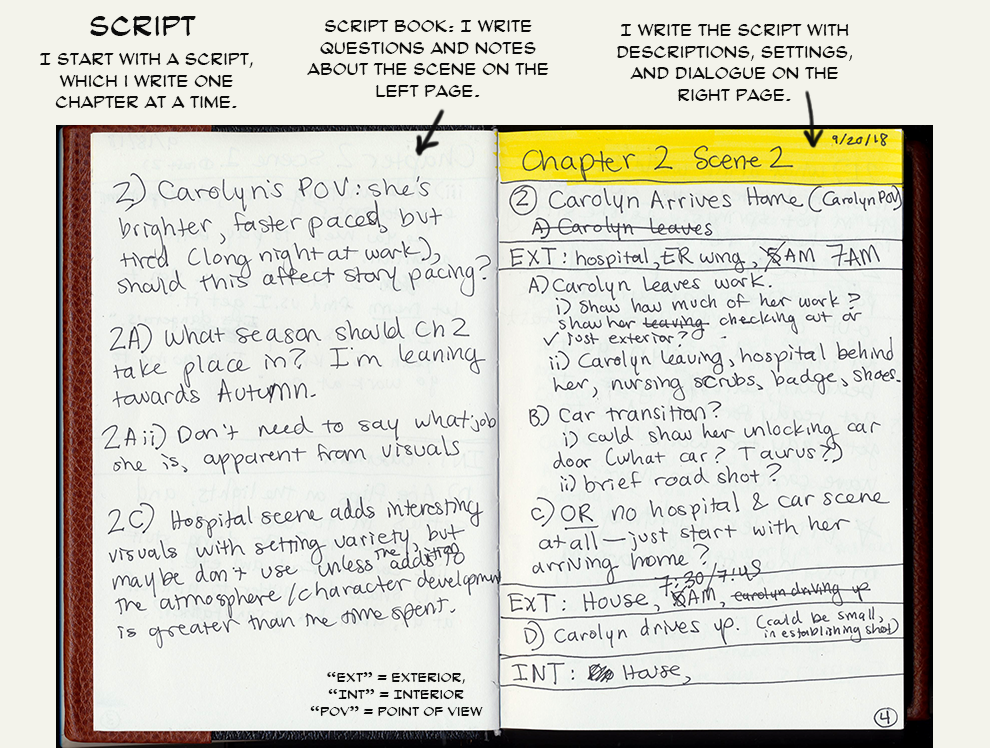 SCRIPT
I START WITH A SCRIPT,
WHICH I WRITE ONE
CHAPTER AT A TIME.
SCRIPT BOOK: I WRITE
QUESTIONS AND NOTES
ABOUT THE SCENE ON THE
LEFT PAGE.
I WRITE THE SCRIPT WITH
DESCRIPTIONS, SETTINGS,
AND DIALOGUE ON THE
RIGHT PAGE.
2) Carolyn's POV: she's
brighter, faster paced, but
tired (long night at work),
should this affect story pacing?
2A) What season should Ch 2
take place in? I'm leaning
towards Autumn.
2Aii) Don't need to say what job
she is, apparent from visuals
2C) Hospital scene adds interesting
visuals with setting variety, but
maybe don't use unless the addition to
the atmosphere/character development
is greater than the time spent.
"EXT" = EXTERIOR,
"INT" = INTERIOR
"POV" = POINT OF VIEW
9/20/18
Chapter 2 Scene 2
② Carolyn Arrives Home (Carolyn POV)
A) Carolyn leaves
EXT: hospital, ER wing, AM 7AM
A) Carolyn leaves work.
i) Show how much of her work?
show her leaving checking out or
✓ just exterior?
ii) Carolyn leaving, hospital behind
her, nursing scrubs, badge, shoes.
B) Car transition?
i) could show her unlocking car
door (what car? Taurus?)
ii) brief road shot?
C) OR no hospital & car scene
at all—just start with her
arriving home?
7:30/7:45
EXT: House, AM, carolyn driving up
D) Carolyn drives up. (could be small,
in establishing shot)
INT: House,
4